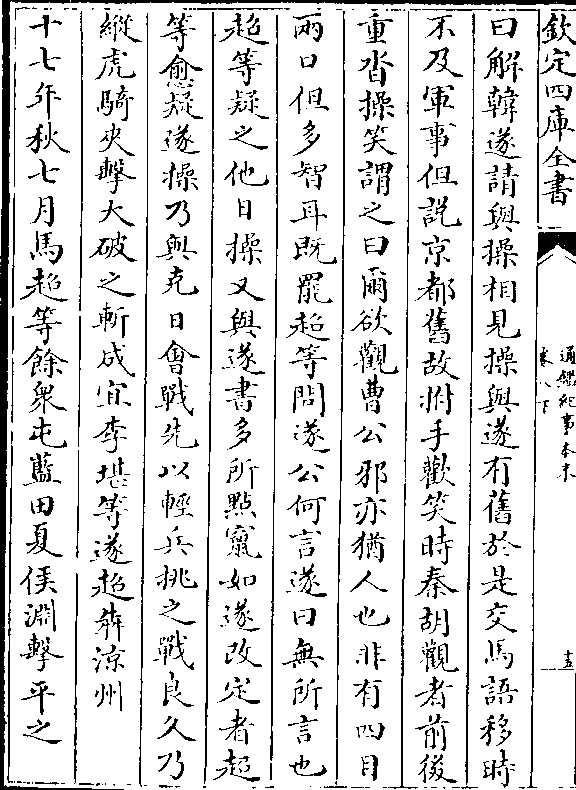 欽定四庫全書
通鑑紀事本末
卷八下
十五
曰解韓遂請與操相見操與遂有舊於是交馬語移時
不及軍事但説京都舊故拊手歡笑時秦胡觀者前後
重沓操笑謂之曰爾欲觀曹公邪亦猶人也非有四目
兩口但多智耳既罷超等問遂公何言遂曰無所言也
超等疑之他日操又與遂書多所㸃竄如遂改定者超
等愈疑遂操乃與克日會戰先以輕兵挑之戰良久乃
縱虎騎夾擊大破之斬成宜李堪等遂超犇涼州
十七年秋七月馬超等餘衆屯藍田夏侯淵擊平之